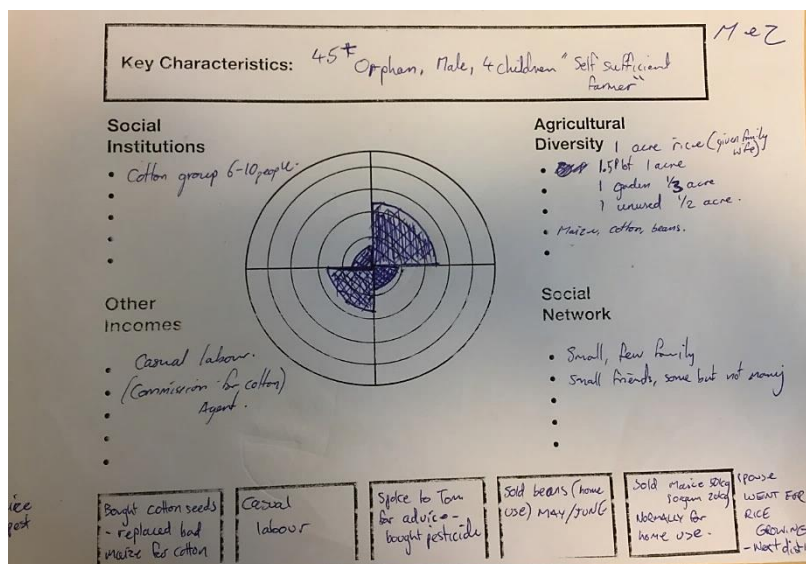 Mez
Key Characteristics: 45+ Orphan, Male, 4 children "Self sufficient
farmer"
Social
Institutions
Cotton group 6-10 people.
Agricultural
Diversity 1 acre rice (given family
wife)
1.5 Plot 1 acre
1 garden 1/3 acre
1 unused 1/2 acre.
Maize, cotton, beans.
Other
Incomes
Casual labour.
(Commission for cotton)
Agent.
Social
Network
Small, few family
Small friends, some but not many
Bought cotton seeds
- replaced bad
maize for cotton
Casual
labour
Spoke to Tom
for advice -
bought pesticide
Sold beans (home
use) MAY/JUNE
Sold Maize 50kg
sorgum 20kg
Normally for
home use.
spouse
WENT FOR
RICE
GROWING
- Next dist